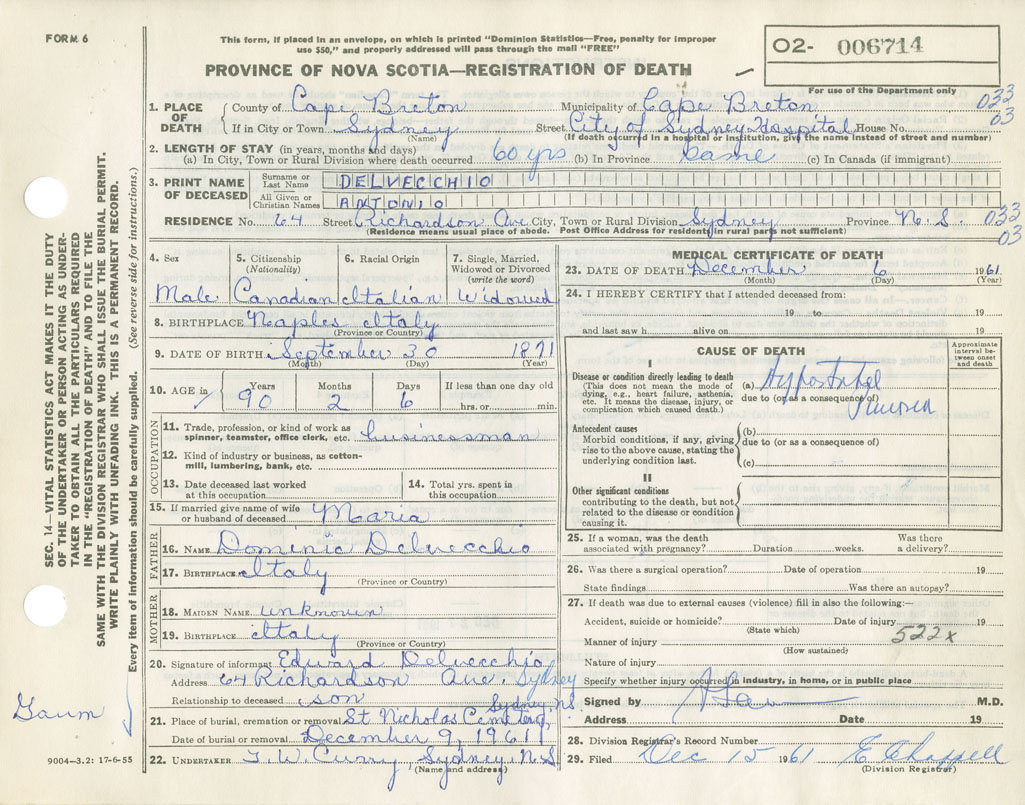 FORM 6
This form, if placed in an envelope, on which is printed "Dominion Statistics—Free, penalty for improper
use $50," and properly addressed will pass through the mail "FREE"
PROVINCE OF NOVA SCOTIA—REGISTRATION OF DEATH
02- 006714
For use of the Department only
1. PLACE OF DEATH County of Cape Breton Municipality of Cape Breton 033
If in City or Town Sydney Street City of Sydney Hospital House No. 03
(Name) (If death occurred in a hospital or institution, give the name instead of street and number)
2. LENGTH OF STAY (in years, months and days)
(a) In City, Town or Rural Division where death occurred 60 yrs (b) In Province Same (c) In Canada (if immigrant)
3. PRINT NAME OF DECEASED Surname or Last Name DELVECCHIO
All Given or Christian Names ANTONIO
RESIDENCE No. 64 Street Richardson Ave. City, Town or Rural Division Sydney Province N.S. 033
(Residence means usual place of abode. Post Office Address for residents in rural parts not sufficient) 03
4. Sex Male
5. Citizenship (Nationality) Canadian
6. Racial Origin Italian
7. Single, Married, Widowed or Divorced (write the word) Widowed
8. BIRTHPLACE Naples Italy
(Province or Country)
9. DATE OF BIRTH September 30 1871
(Month) (Day) (Year)
10. AGE in Years 90 Months 2 Days 6 If less than one day old hrs. or min.
OCCUPATION
11. Trade, profession, or kind of work as spinner, teamster, office clerk, etc. businessman
12. Kind of industry or business, as cotton-mill, lumbering, bank, etc.
13. Date deceased last worked at this occupation
14. Total yrs. spent in this occupation
15. If married give name of wife or husband of deceased Maria
FATHER
16. NAME Dominic Delvecchio
17. BIRTHPLACE Italy
(Province or Country)
MOTHER
18. MAIDEN NAME unknown
19. BIRTHPLACE Italy
(Province or Country)
20. Signature of informant Edward Delvecchio
Address 64 Richardson Ave. Sydney
Relationship to deceased son
21. Place of burial, cremation or removal St Nicholas Cemetery Sydney N.S.
Date of burial or removal December 9, 1961
22. UNDERTAKER T. W. Curry Sydney, N.S.
(Name and address)
MEDICAL CERTIFICATE OF DEATH
23. DATE OF DEATH December 6 1961
(Month) (Day) (Year)
24. I HEREBY CERTIFY that I attended deceased from:
19 to 19
and last saw h alive on 19
CAUSE OF DEATH
Approximate interval between onset and death
I
Disease or condition directly leading to death
(This does not mean the mode of dying, e.g., heart failure, asthenia, etc. It means the disease, injury, or complication which caused death.)
(a)
due to (or as a consequence of)
Antecedent causes
Morbid conditions, if any, giving rise to the above cause, stating the underlying condition last.
(b)
due to (or as a consequence of)
(c)
II
Other significant conditions
contributing to the death, but not related to the disease or condition causing it.
25. If a woman, was the death associated with pregnancy? Duration weeks. Was there a delivery?
26. Was there a surgical operation? Date of operation 19
State findings Was there an autopsy?
27. If death was due to external causes (violence) fill in also the following:—
Accident, suicide or homicide? Date of injury 19
(State which) 522x
Manner of injury
(How sustained)
Nature of injury
Specify whether injury occurred in industry, in home, or in public place
Signed by M.D.
Address Date 19
28. Division Registrar's Record Number
29. Filed Dec 15 1961 E Chappell
(Division Registrar)
SEC. 14—VITAL STATISTICS ACT MAKES IT THE DUTY
OF THE UNDERTAKER OR PERSON ACTING AS UNDER-
TAKER TO OBTAIN ALL THE PARTICULARS REQUIRED
IN THE "REGISTRATION OF DEATH" AND TO FILE THE
SAME WITH THE DIVISION REGISTRAR WHO SHALL ISSUE THE BURIAL PERMIT.
WRITE PLAINLY WITH UNFADING INK. THIS IS A PERMANENT RECORD.
Every item of information should be carefully supplied. (See reverse side for instructions.)
9004—3.2: 17-6-55